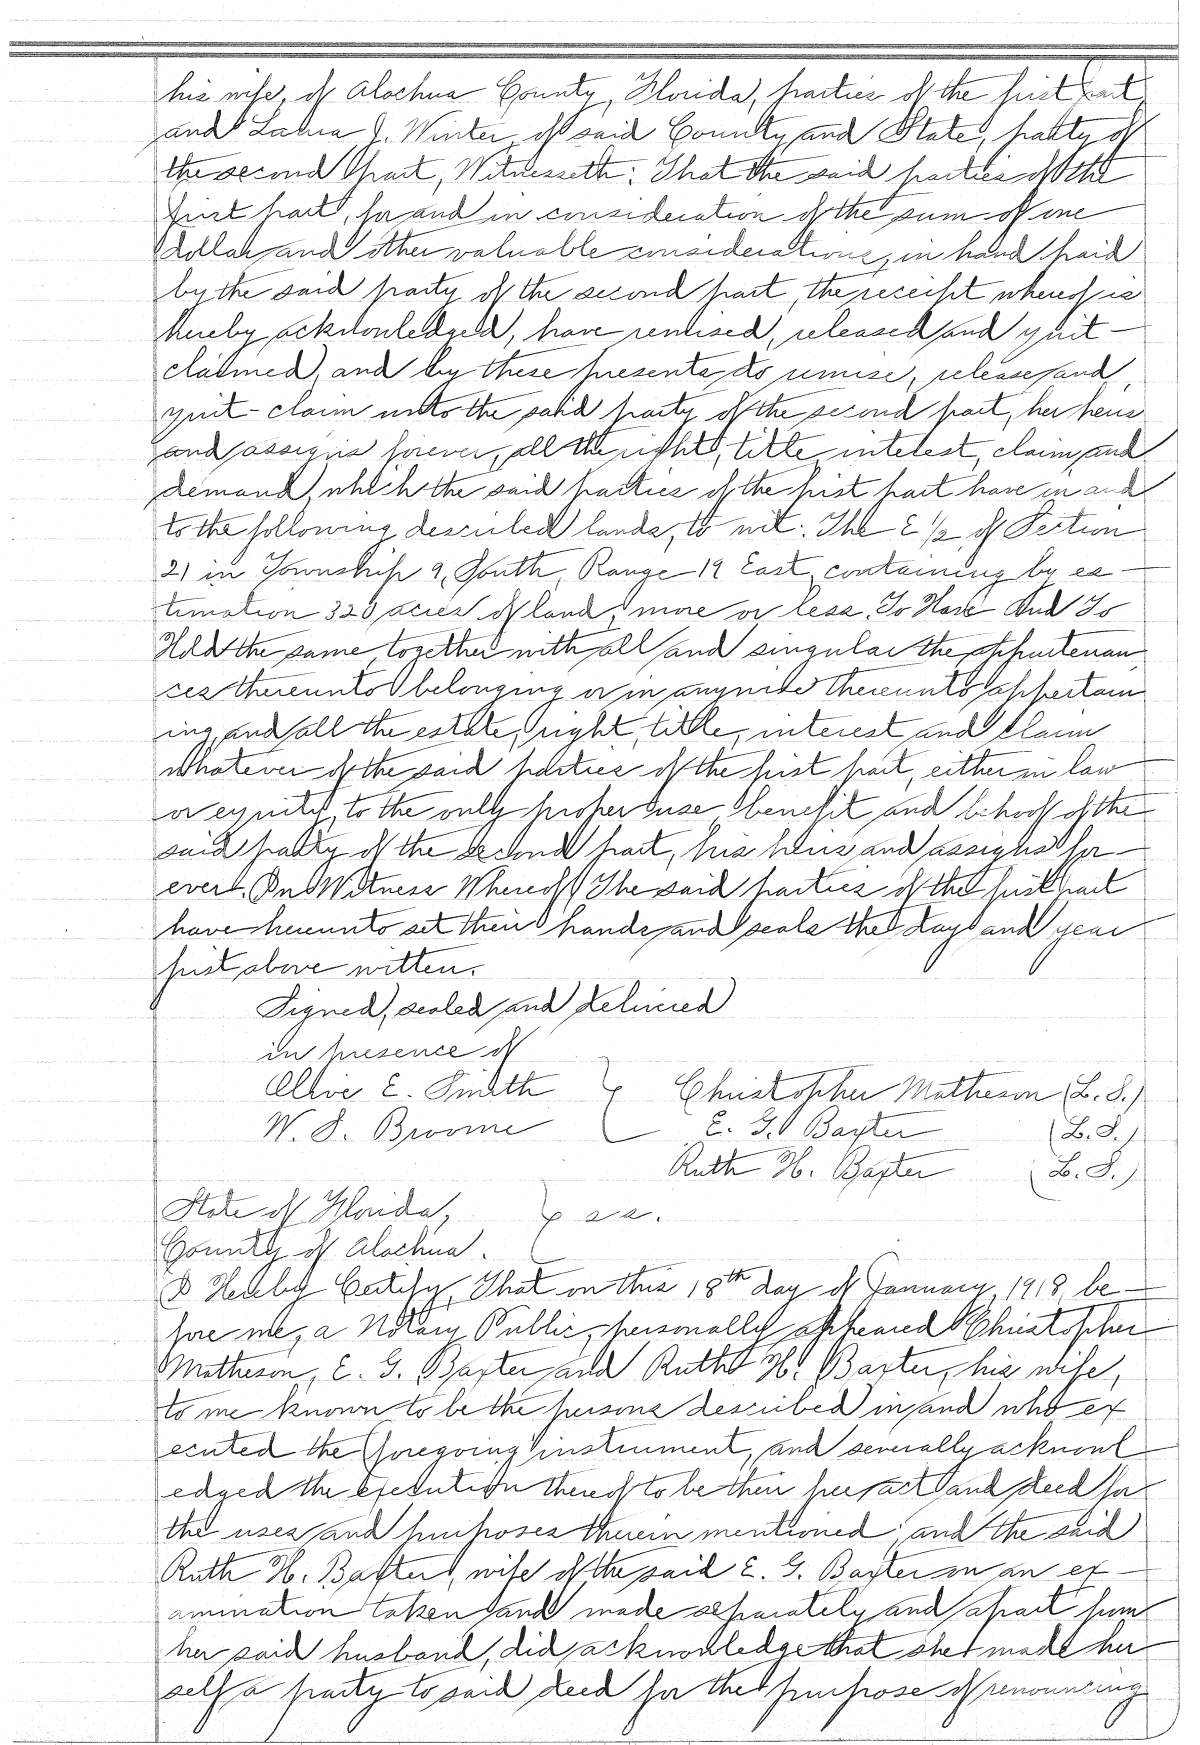 his wife, of Alachua County, Florida, parties of the first part,
and Laura J. Winter, of said County and State, party of
the second part, Witnesseth: That the said parties of the
first part, for and in consideration of the sum of one
dollar and other valuable considerations, in hand paid
by the said party of the second part, the receipt whereof is
hereby acknowledged, have remised, released and quit-
claimed, and by these presents do remise, release and
quit-claim unto the said party of the second part, her heirs
and assigns forever, all the right, title, interest, claim and
demand, which the said parties of the first part have in and
to the following described lands, to wit: The E 1/2 of Section
21 in Township 9, South, Range 19 East, containing by es-
timation 320 acres of land, more or less. To Have And To
Hold the same, together with all and singular the appurtenan
ces thereunto belonging or in anywise thereunto appertain
ing, and all the estate, right, title, interest and claim
whatever of the said parties of the first part, either in law
or equity, to the only proper use, benefit and behoof of the
said party of the second part, his heirs and assigns for-
ever. In Witness Whereof, The said parties of the first part
have hereunto set their hands and seals the day and year
first above written.
Signed, sealed and delivered
in presence of
Olive E. Smith } Christopher Matheson (L. S.)
W. S. Broome E. G. Baxter (L. S.)
Ruth H. Baxter (L. S.)
State of Florida, } ss.
County of Alachua.
I Hereby Certify, That on this 18th day of January, 1918, be-
fore me, a Notary Public, personally appeared Christopher
Matheson, E. G. Baxter and Ruth H. Baxter, his wife,
to me known to be the persons described in and who ex
ecuted the foregoing instrument, and severally acknowl
edged the execution thereof to be their free act and deed for
the uses and purposes therein mentioned; and the said
Ruth H. Baxter, wife of the said E. G. Baxter on an ex-
amination taken and made separately and apart from
her said husband, did acknowledge that she made her
self a party to said deed for the purpose of renouncing